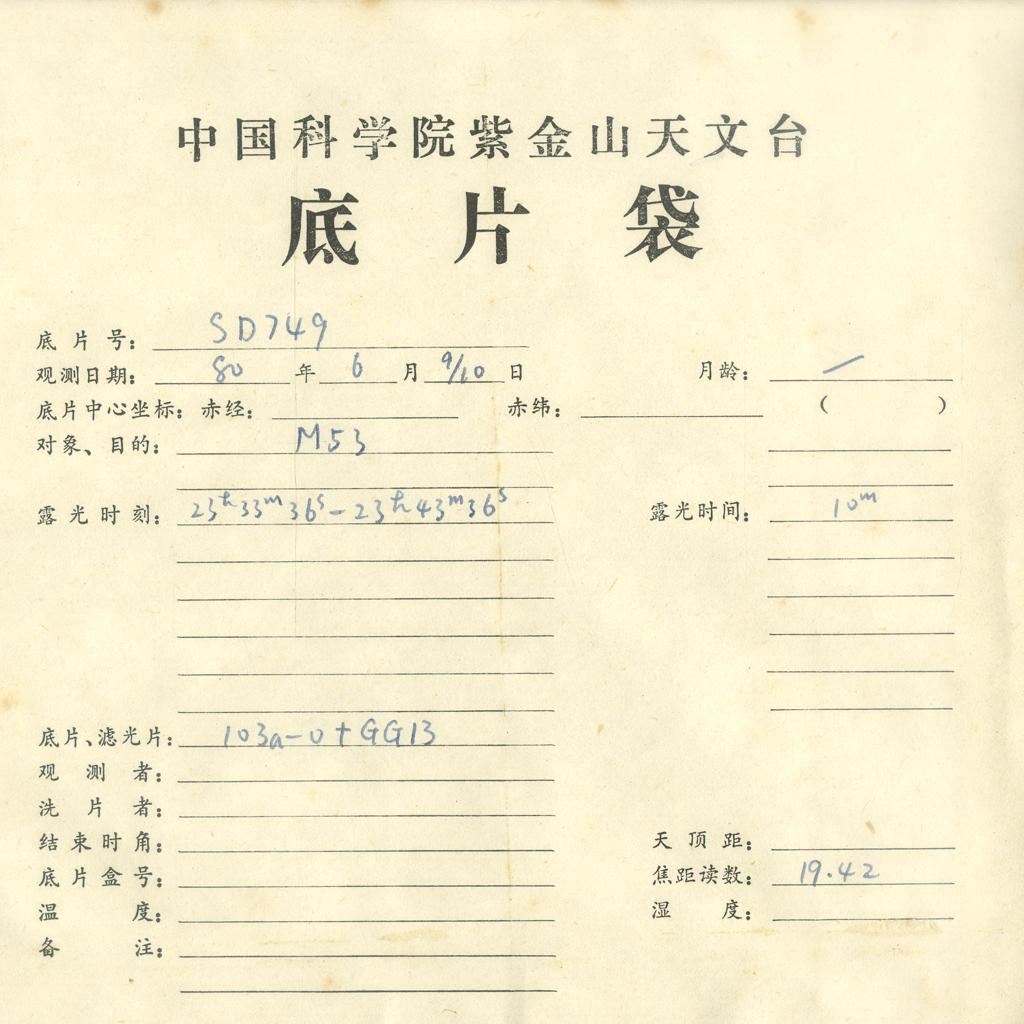 中国科学院紫金山天文台
底片袋
底片号: SD749
观测日期: 80 年 6 月 9/10 日 月龄: —
底片中心坐标: 赤经: 赤纬: ( )
对象、目的: M53
露光时刻: 23h33m36s-23h43m36s 露光时间: 10m
底片、滤光片: 103a-0+GG13
观测者:
洗片者:
结束时角: 天顶距:
底片盒号: 焦距读数: 19.42
温度: 湿度:
备注: